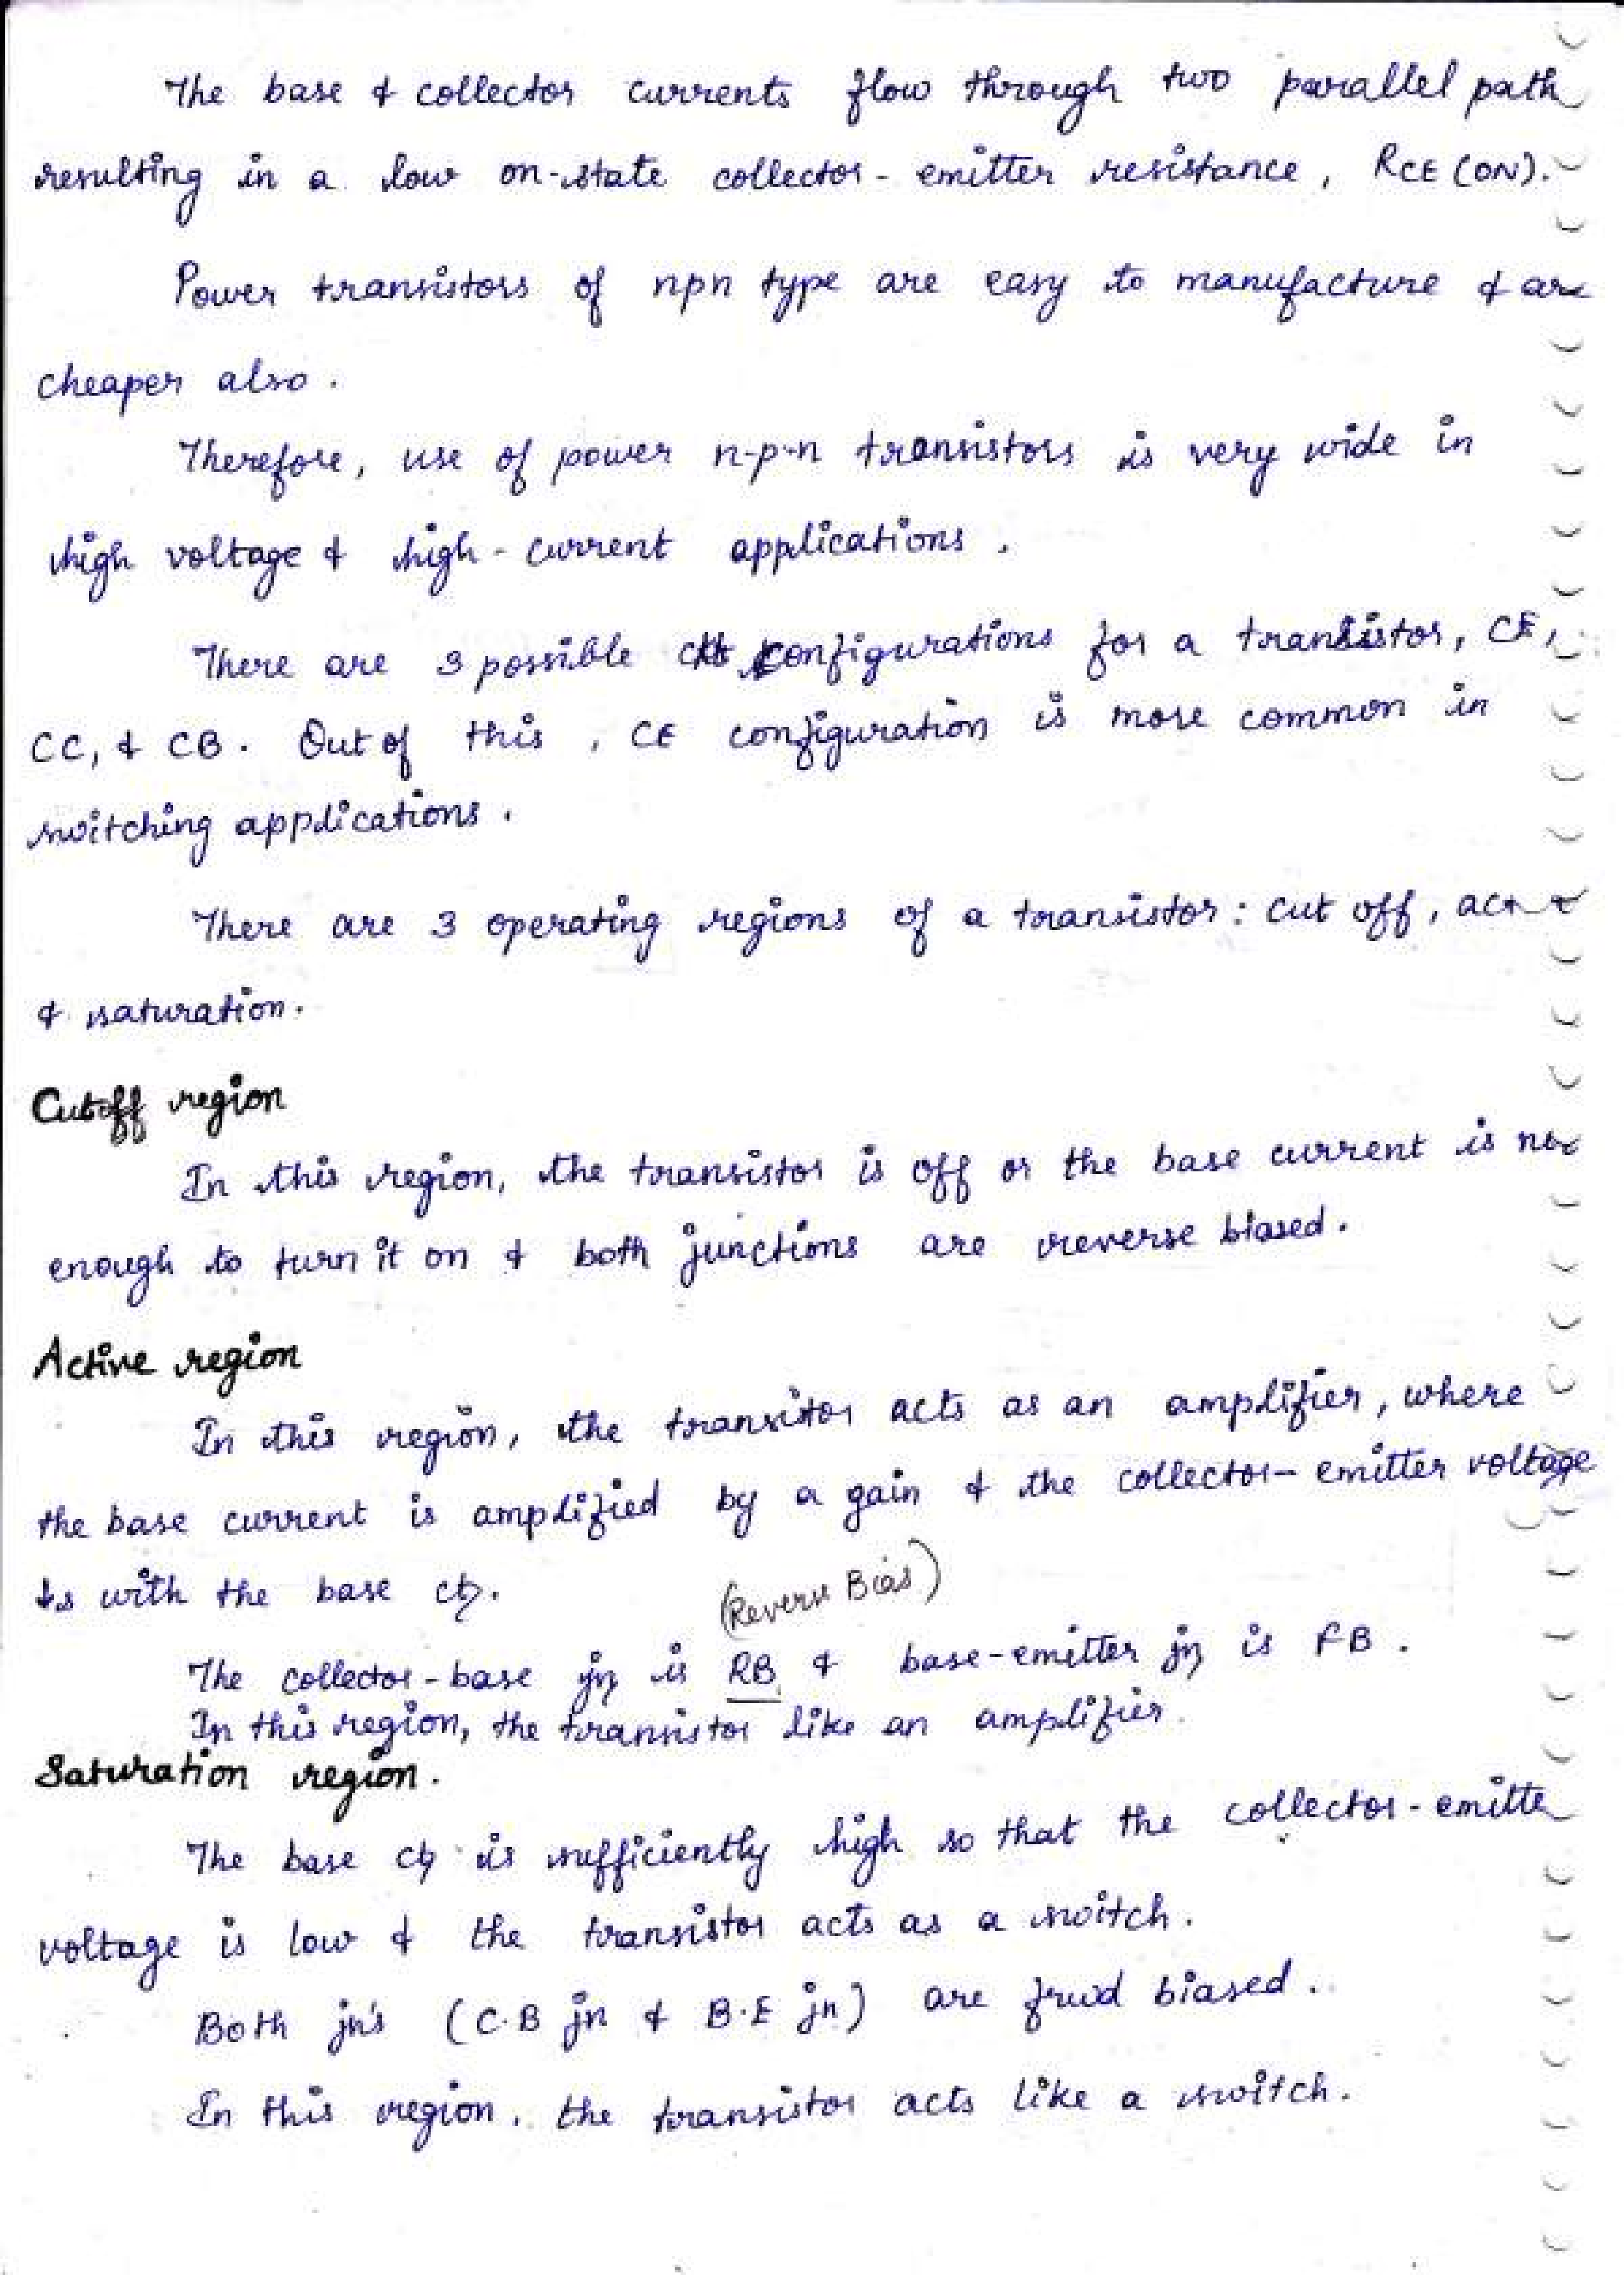 The base & collector currents flow through two parallel path
resulting in a low on-state collector-emitter resistance, RCE (ON).
Power transistors of npn type are easy to manufacture & are
cheaper also.
Therefore, use of power n-p-n transistors is very wide in
high voltage & high-current applications.
There are 3 possible configurations for a transistor, CE,
CC, & CB. Out of this, CE configuration is more common in
switching applications.
There are 3 operating regions of a transistor: cut off,
& saturation.
Cutoff region
In this region, the transistor is off or the base current is not
enough to turn it on & both junctions are reverse biased.
Active region
In this region, the transitor acts as an amplifier, where
the base current is amplified by a gain & the collector-emitter voltage
↓s with the base ct.
(Reverse Bias)
The collector-base jn is RB & base-emitter jn is FB.
In this region, the transistor like an amplifier.
Saturation region.
The base ct is sufficiently high so that the collector-emitte
voltage is low & the transistor acts as a switch.
Both jn's (C.B jn & B.E jn) are frwd biased.
In this region, the transistor acts like a switch.